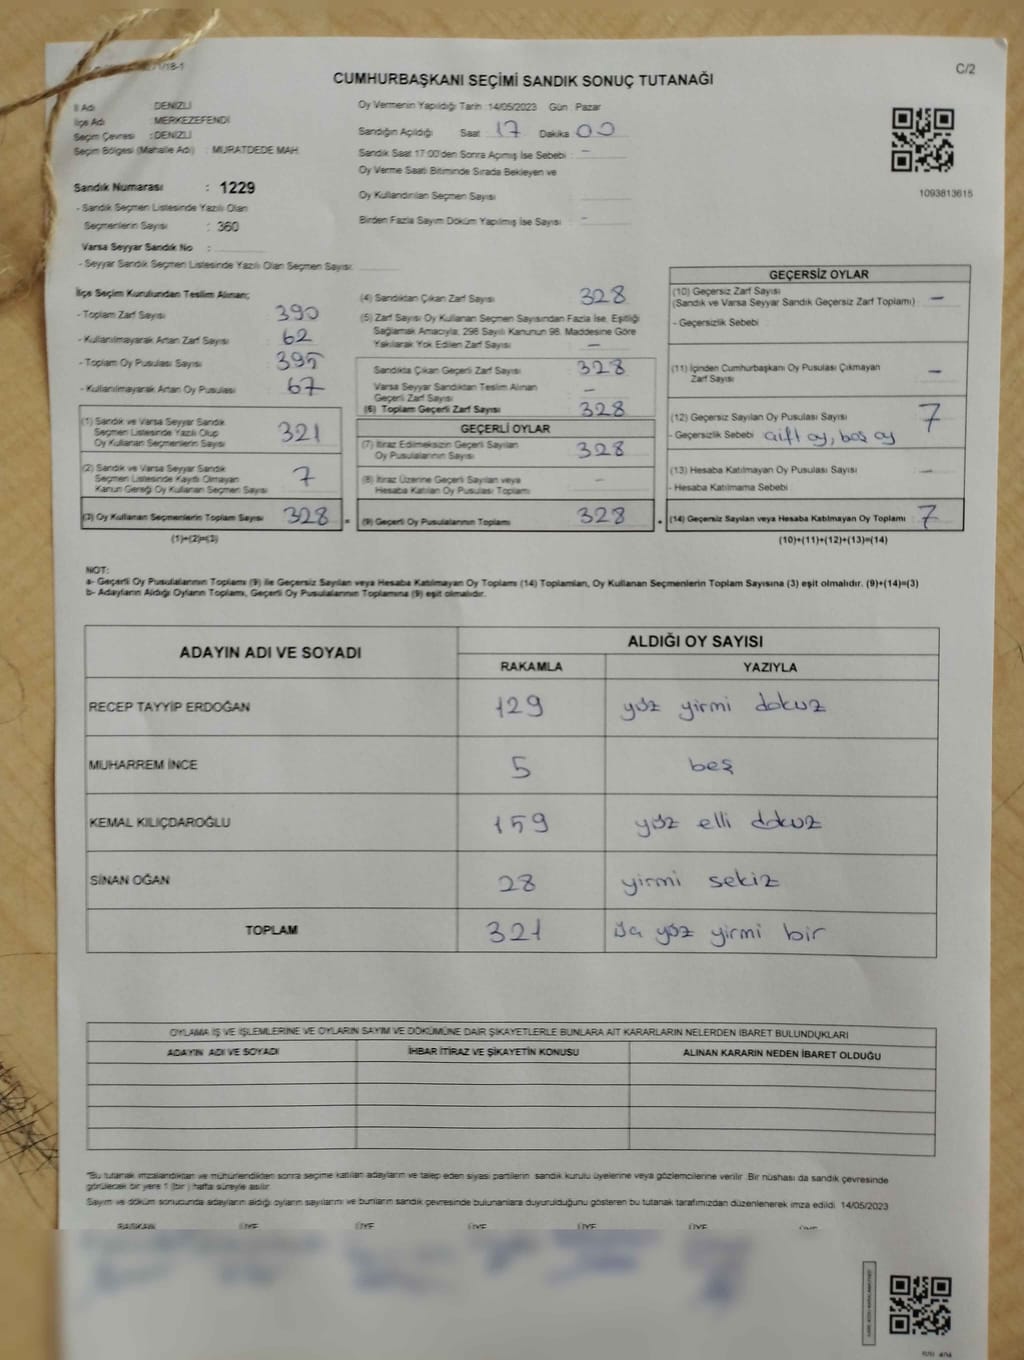 C/2
CUMHURBAŞKANI SEÇİMİ SANDIK SONUÇ TUTANAĞI
İl Adı : DENİZLİ
İlçe Adı : MERKEZEFENDİ
Seçim Çevresi : DENİZLİ
Seçim Bölgesi (Mahalle Adı) : MURATDEDE MAH.
Sandık Numarası : 1229
- Sandık Seçmen Listesinde Yazılı Olan
Seçmenlerin Sayısı : 360
Varsa Seyyar Sandık No :
- Seyyar Sandık Seçmen Listesinde Yazılı Olan Seçmen Sayısı:
Oy Vermenin Yapıldığı Tarih : 14/05/2023 Gün : Pazar
Sandığın Açıldığı Saat 17 Dakika 00
Sandık Saat 17:00'den Sonra Açılmış İse Sebebi : -
Oy Verme Saati Bitiminde Sırada Bekleyen ve
Oy Kullandırılan Seçmen Sayısı :
Birden Fazla Sayım Döküm Yapılmış İse Sayısı : -
1093813615
İlçe Seçim Kurulundan Teslim Alınan;
- Toplam Zarf Sayısı 390
- Kullanılmayarak Artan Zarf Sayısı 62
- Toplam Oy Pusulası Sayısı 395
- Kullanılmayarak Artan Oy Pusulası 67
(1) Sandık ve Varsa Seyyar Sandık
Seçmen Listesinde Yazılı Olup
Oy Kullanan Seçmenlerin Sayısı 321
(2) Sandık ve Varsa Seyyar Sandık
Seçmen Listesinde Kayıtlı Olmayan
Kanun Gereği Oy Kullanan Seçmen Sayısı 7
(3) Oy Kullanan Seçmenlerin Toplam Sayısı 328
(1)+(2)=(3)
(4) Sandıktan Çıkan Zarf Sayısı 328
(5) Zarf Sayısı Oy Kullanan Seçmen Sayısından Fazla İse, Eşitliği
Sağlamak Amacıyla; 298 Sayılı Kanunun 98. Maddesine Göre
Yakılarak Yok Edilen Zarf Sayısı -
Sandıkta Çıkan Geçerli Zarf Sayısı 328
Varsa Seyyar Sandıktan Teslim Alınan
Geçerli Zarf Sayısı -
(6) Toplam Geçerli Zarf Sayısı 328
GEÇERLİ OYLAR
(7) İtiraz Edilmeksizin Geçerli Sayılan
Oy Pusulalarının Sayısı 328
(8) İtiraz Üzerine Geçerli Sayılan veya
Hesaba Katılan Oy Pusulası Toplamı -
(9) Geçerli Oy Pusulalarının Toplamı 328
GEÇERSİZ OYLAR
(10) Geçersiz Zarf Sayısı
(Sandık ve Varsa Seyyar Sandık Geçersiz Zarf Toplamı) -
- Geçersizlik Sebebi
(11) İçinden Cumhurbaşkanı Oy Pusulası Çıkmayan
Zarf Sayısı -
(12) Geçersiz Sayılan Oy Pusulası Sayısı 7
- Geçersizlik Sebebi çift oy, boş oy
(13) Hesaba Katılmayan Oy Pusulası Sayısı -
- Hesaba Katılmama Sebebi
(14) Geçersiz Sayılan veya Hesaba Katılmayan Oy Toplamı 7
(10)+(11)+(12)+(13)=(14)
NOT:
a- Geçerli Oy Pusulalarının Toplamı (9) ile Geçersiz Sayılan veya Hesaba Katılmayan Oy Toplamı (14) Toplamları, Oy Kullanan Seçmenlerin Toplam Sayısına (3) eşit olmalıdır. (9)+(14)=(3)
b- Adayların Aldığı Oyların Toplamı, Geçerli Oy Pusulalarının Toplamına (9) eşit olmalıdır.
ADAYIN ADI VE SOYADI
ALDIĞI OY SAYISI
RAKAMLA YAZIYLA
RECEP TAYYİP ERDOĞAN 129 yüz yirmi dokuz
MUHARREM İNCE 5 beş
KEMAL KILIÇDAROĞLU 159 yüz elli dokuz
SİNAN OĞAN 28 yirmi sekiz
TOPLAM 321 üç yüz yirmi bir
OYLAMA İŞ VE İŞLEMLERİNE VE OYLARIN SAYIM VE DÖKÜMÜNE DAİR ŞİKAYETLERLE BUNLARA AİT KARARLARIN NELERDEN İBARET BULUNDUKLARI
ADAYIN ADI VE SOYADI İHBAR İTİRAZ VE ŞİKAYETİN KONUSU ALINAN KARARIN NEDEN İBARET OLDUĞU
*Bu tutanak imzalandıktan ve mühürlendikten sonra seçime katılan adayların ve talep eden siyasi partilerin sandık kurulu üyelerine veya gözlemcilerine verilir. Bir nüshası da sandık çevresinde
görülecek bir yere 1 (bir) hafta süreyle asılır.
Sayım ve döküm sonucunda adayların aldığı oyların sayılarını ve bunların sandık çevresinde bulunanlara duyurulduğunu gösteren bu tutanak tarafımızdan düzenlenerek imza edildi. 14/05/2023
BAŞKAN ÜYE ÜYE ÜYE ÜYE ÜYE ÜYE